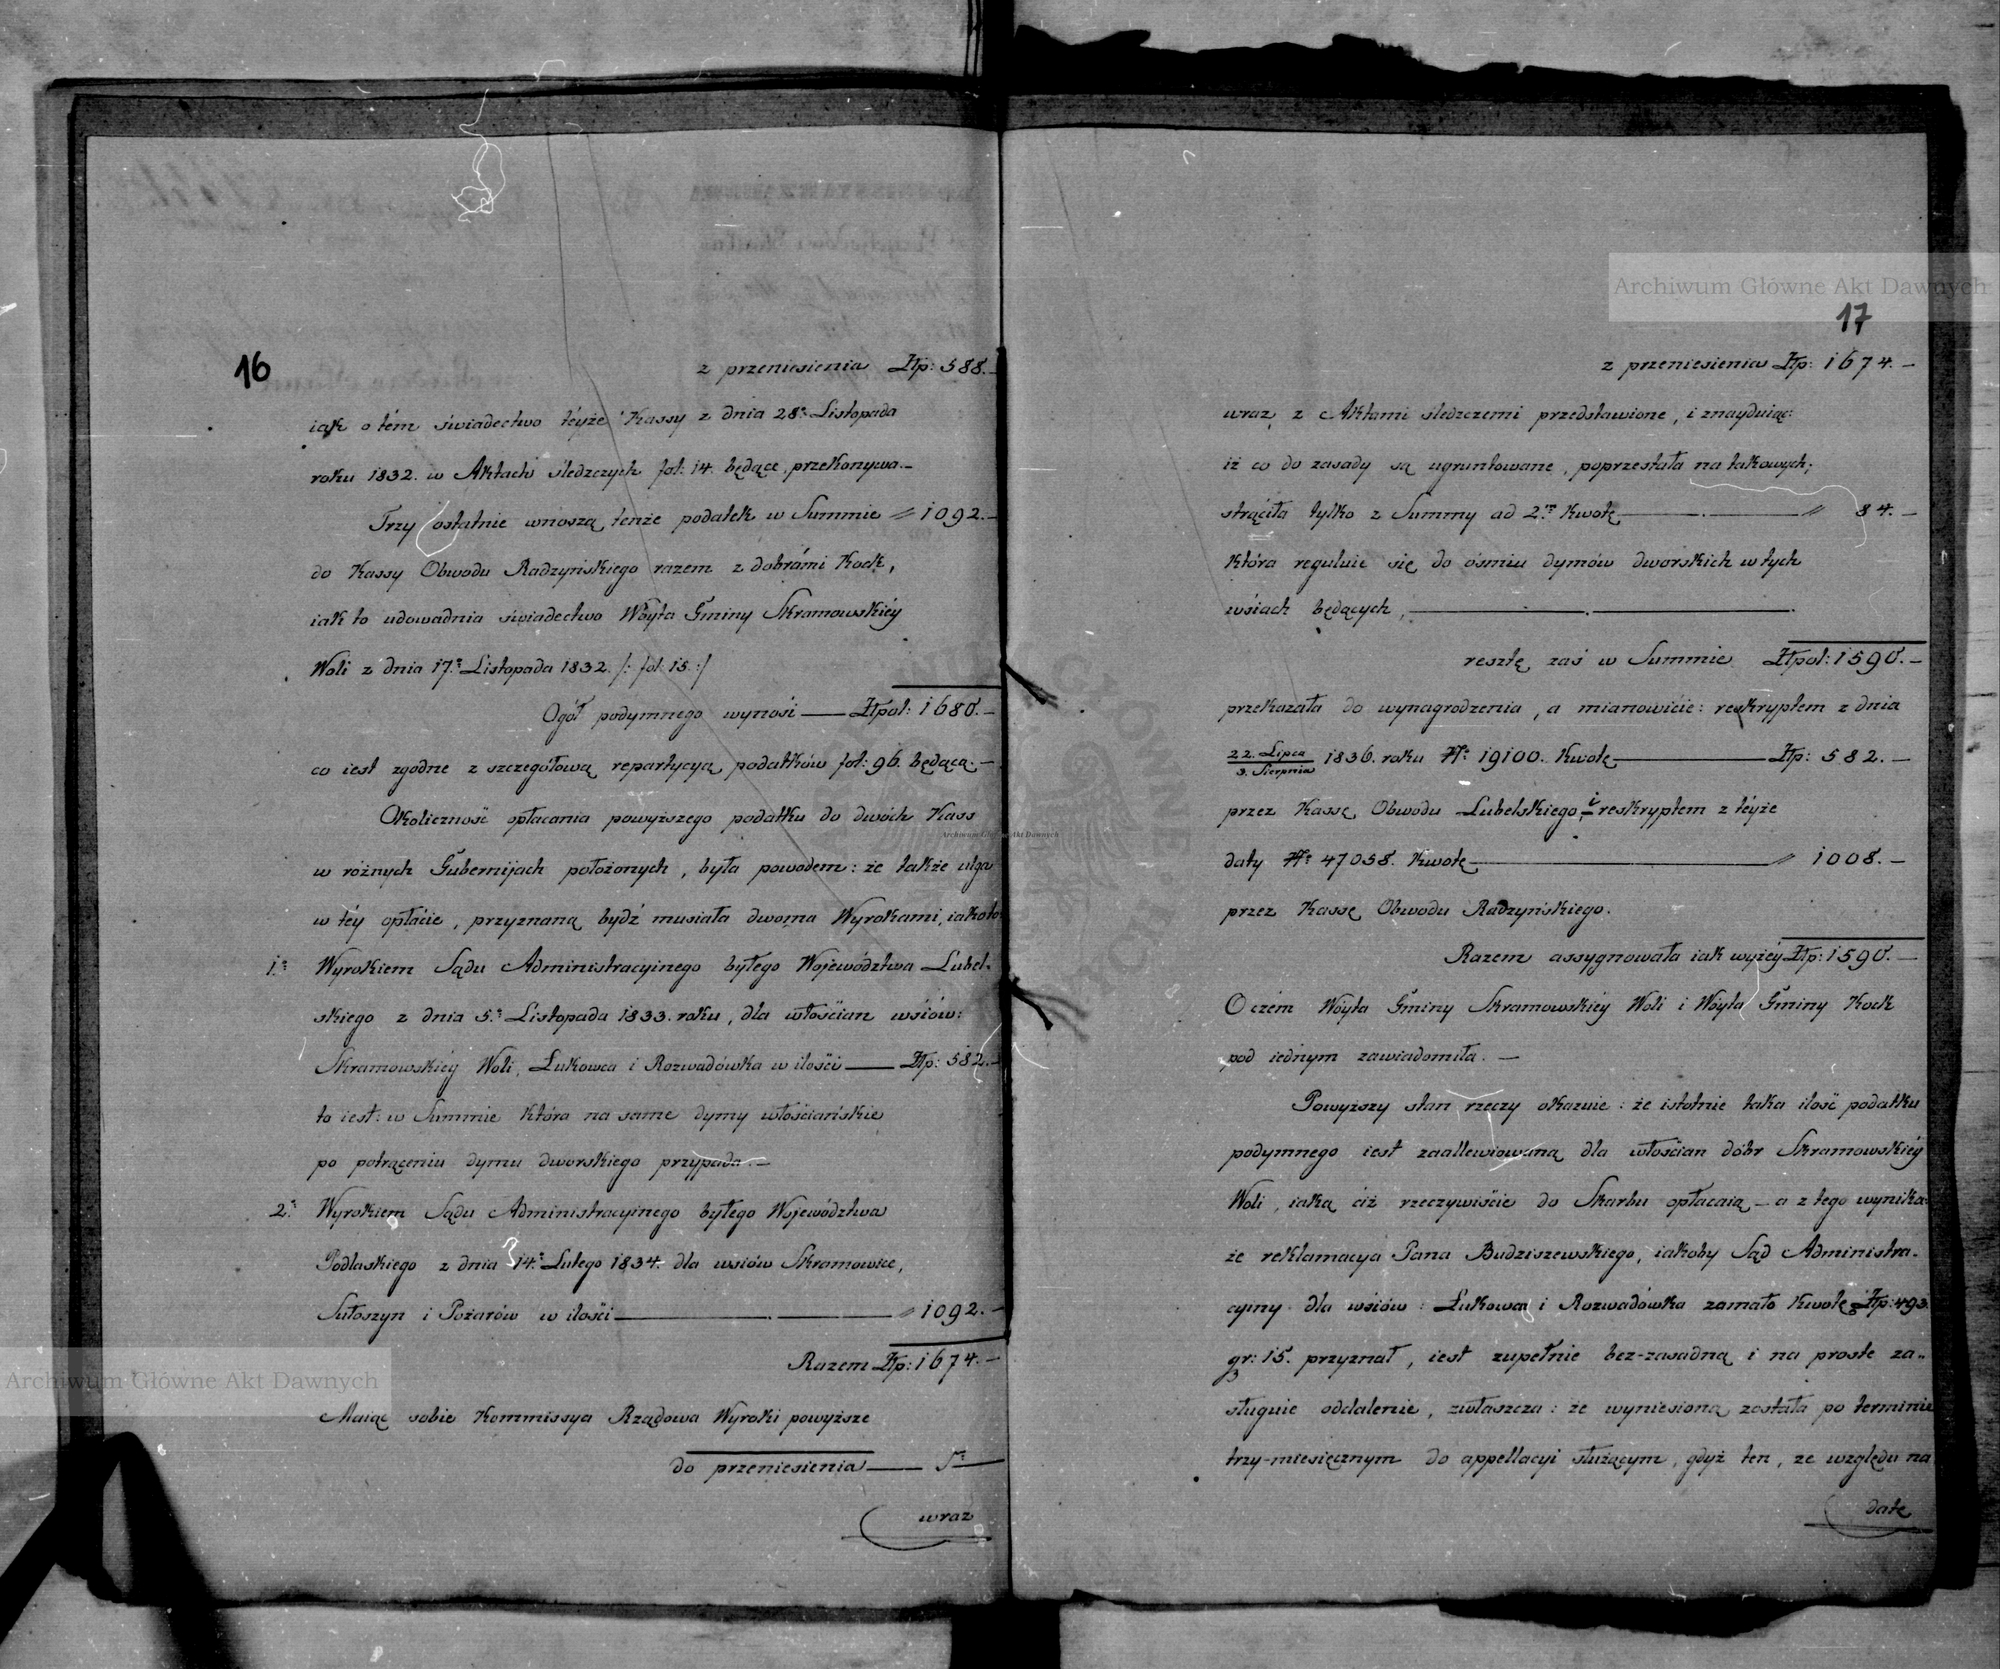 16
z przeniesienia Złp: 588.–
iak o tém świadectwo téyże Kassy z dnia 28º Listopada
roku 1832. w Aktach śledzczych fol: 14. będące, przekonywa.–
Trzy ostatnie wnoszą tenże podatek w Summie „ 1092.–
do Kassy Obwodu Radzyńskiego razem z dobrámi Kock,
iak to udowadnia świadectwo Wóyta Gminy Skramowskiéy
Woli z dnia 17º Listopada 1832. /: fol: 15 :/
Ogół podymnego wynosi — Złpol: 1680.–
co iest zgodne z szczegółową repartycyą podatków fol: 96. będącą.–
Okoliczność opłacania powyższego podatku do dwóch Kass
w różnych Gubernijach położonych, była powodem: że także ulga
w téy opłácie, przyznaną bydź musiała dwoma Wyrokami, iakoto
1º Wyrokiem Sądu Administracyinego byłego Województwa Lubel-
skiego z dnia 5º Listopada 1833. roku, dla włościan wsiów:
Skramowskiéy Woli, Łukowca i Rozwadówka w ilości — Złp: 582.–
to iest: w Summie która na same dymy włościańskie
po potrąceniu dymu dworskiego przypada.–
2º Wyrokiem Sądu Administracyinego byłego Województwa
Podlaskiego z dnia 14º Lutego 1834. dla wsiów Skromowice,
Sułoszyn i Pożarów w ilości — „ 1092.–
Razem Złp: 1674.–
Maiąc sobie Kommissya Rządowa Wyroki powyższe
do przeniesienia —
wraz
17
z przeniesienia Złp: 1674.–
wraz z Aktami śledzczemi przedstawione, i znayduiąc:
iż co do zasady są ugruntowane, poprzestała na takowych;
strąciła tylko z Summy ad 2º Kwotę — „ 84.–
która reguluie się do ośmiu dymów dworskich w tych
wsiach będących, —
resztę zaś w Summie Złpol: 1590.–
przekazała do wynagrodzenia, a mianowicie: reskryptem z dnia
22. Lipca / 3. Sierpnia 1836. roku Nº 19100. Kwotę — Złp: 582.–
przez Kassę Obwodu Lubelskiego, i reskryptem z téyże
daty Nº 47058. Kwotę — „ 1008.–
przez Kassę Obwodu Radzyńskiego.
Razem assygnowała iak wyżéy Złp: 1590.–
O czém Wóyta Gminy Skramowskiéy Woli i Wóyta Gminy Kock
pod iednym zawiadomiła.–
Powyższy stan rzeczy okazuie: że istotnie taka ilość podatku
podymnego iest zaallewiowaną dla włościan dóbr Skramowskiéy
Woli, iaką ciż rzeczywiście do Skarbu opłacaią – a z tego wynika:
że reklamacya Pana Budziszewskiego, iakoby Sąd Administra-
cyiny dla wsiów: Łukowca i Rozwadówka zamało Kwotę Złp: 493.
gr: 15. przyznał, iest zupełnie bez-zasadną i na proste za-
sługuie oddalenie, zwłaszcza: że wyniesioną została po terminie
trzy-miesięcznym do appellacyi służącym, gdyż ten, ze względu na
datę
Archiwum Główne Akt Dawnych
Archiwum Główne Akt Dawnych
Archiwum Główne Akt Dawnych